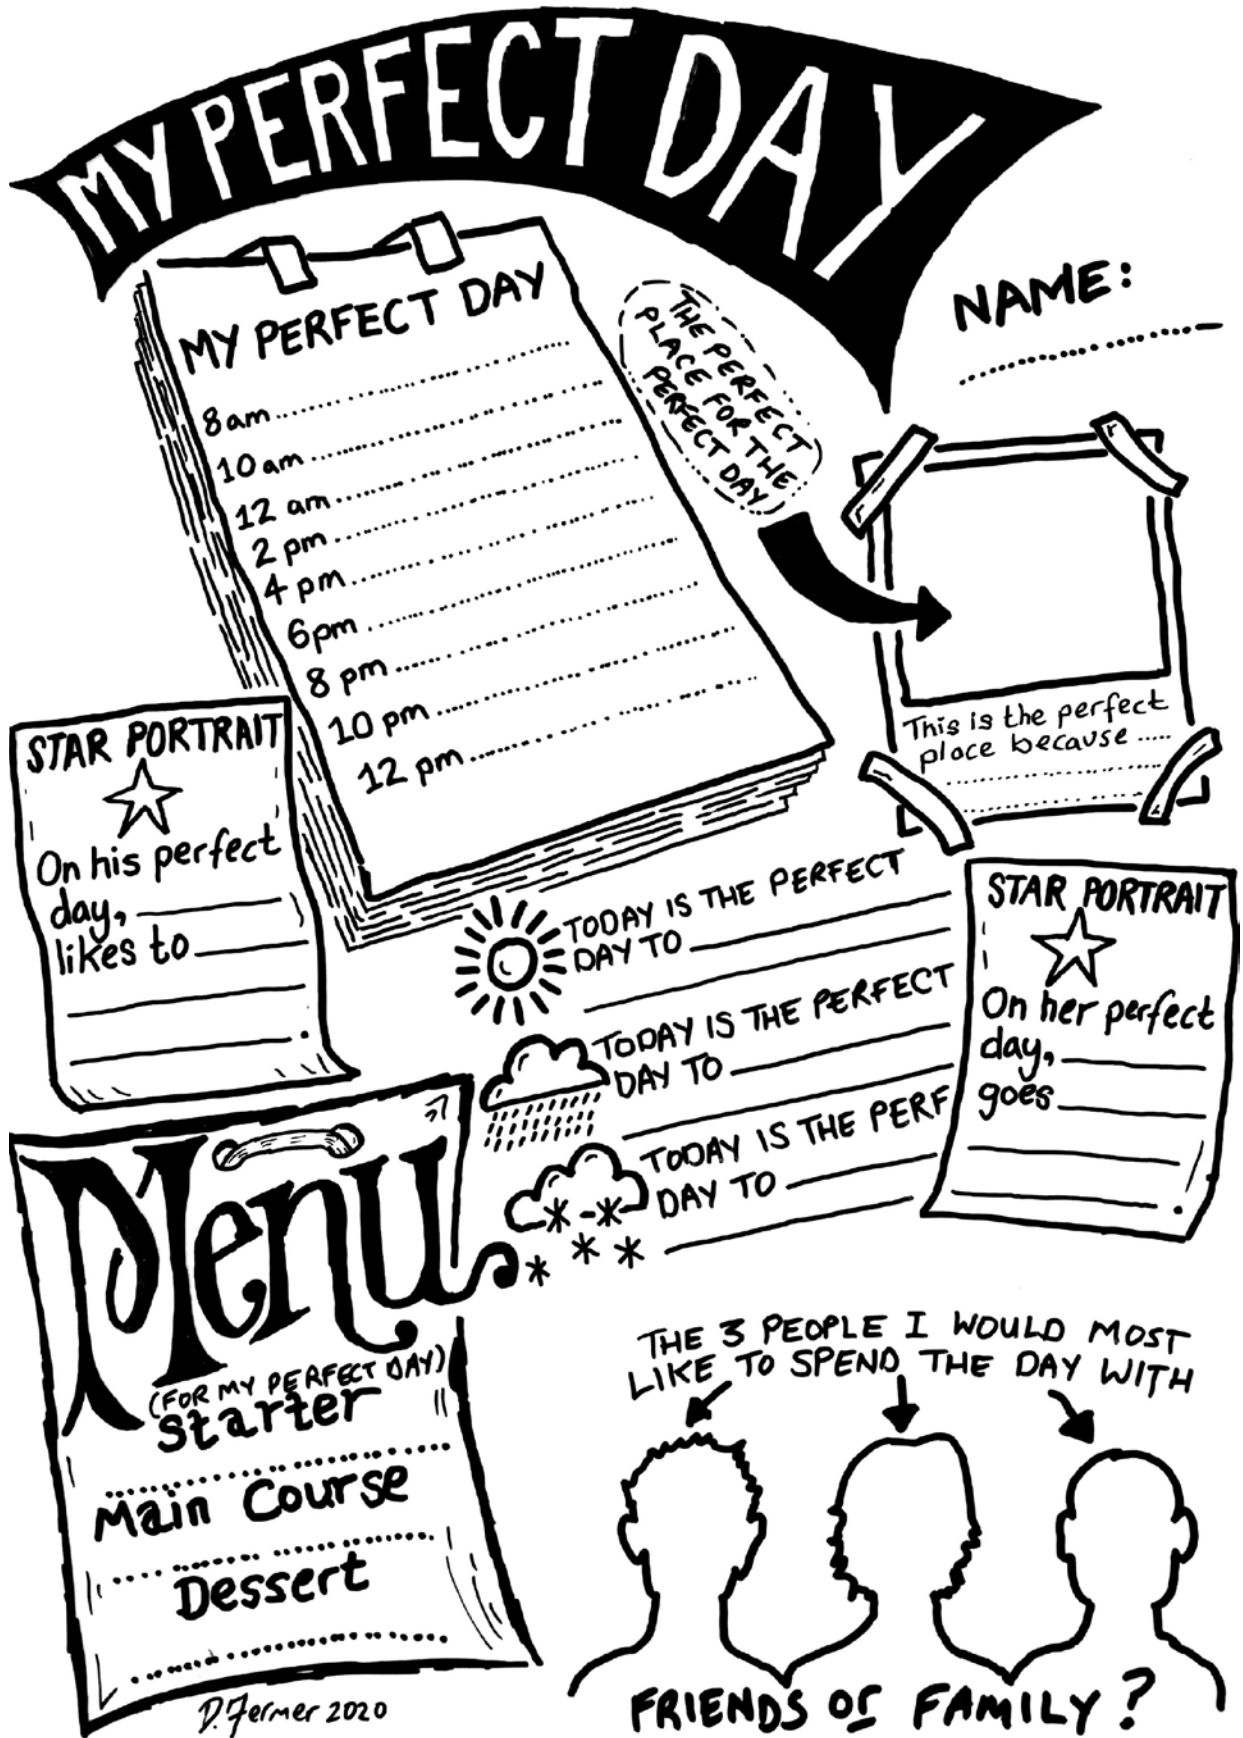 MY PERFECT DAY
NAME:
MY PERFECT DAY
8am
10 am
12 am
2 pm
4 pm
6pm
8 pm
10 pm
12 pm
THE PERFECT
PLACE FOR THE
PERFECT DAY
This is the perfect
place because
STAR PORTRAIT
On his perfect
day,
likes to
TODAY IS THE PERFECT
DAY TO
TODAY IS THE PERFECT
DAY TO
TODAY IS THE PERF
DAY TO
STAR PORTRAIT
On her perfect
day,
goes
Menu
(FOR MY PERFECT DAY)
Starter
Main Course
Dessert
THE 3 PEOPLE I WOULD MOST
LIKE TO SPEND THE DAY WITH
FRIENDS or FAMILY?
D. Fermer 2020